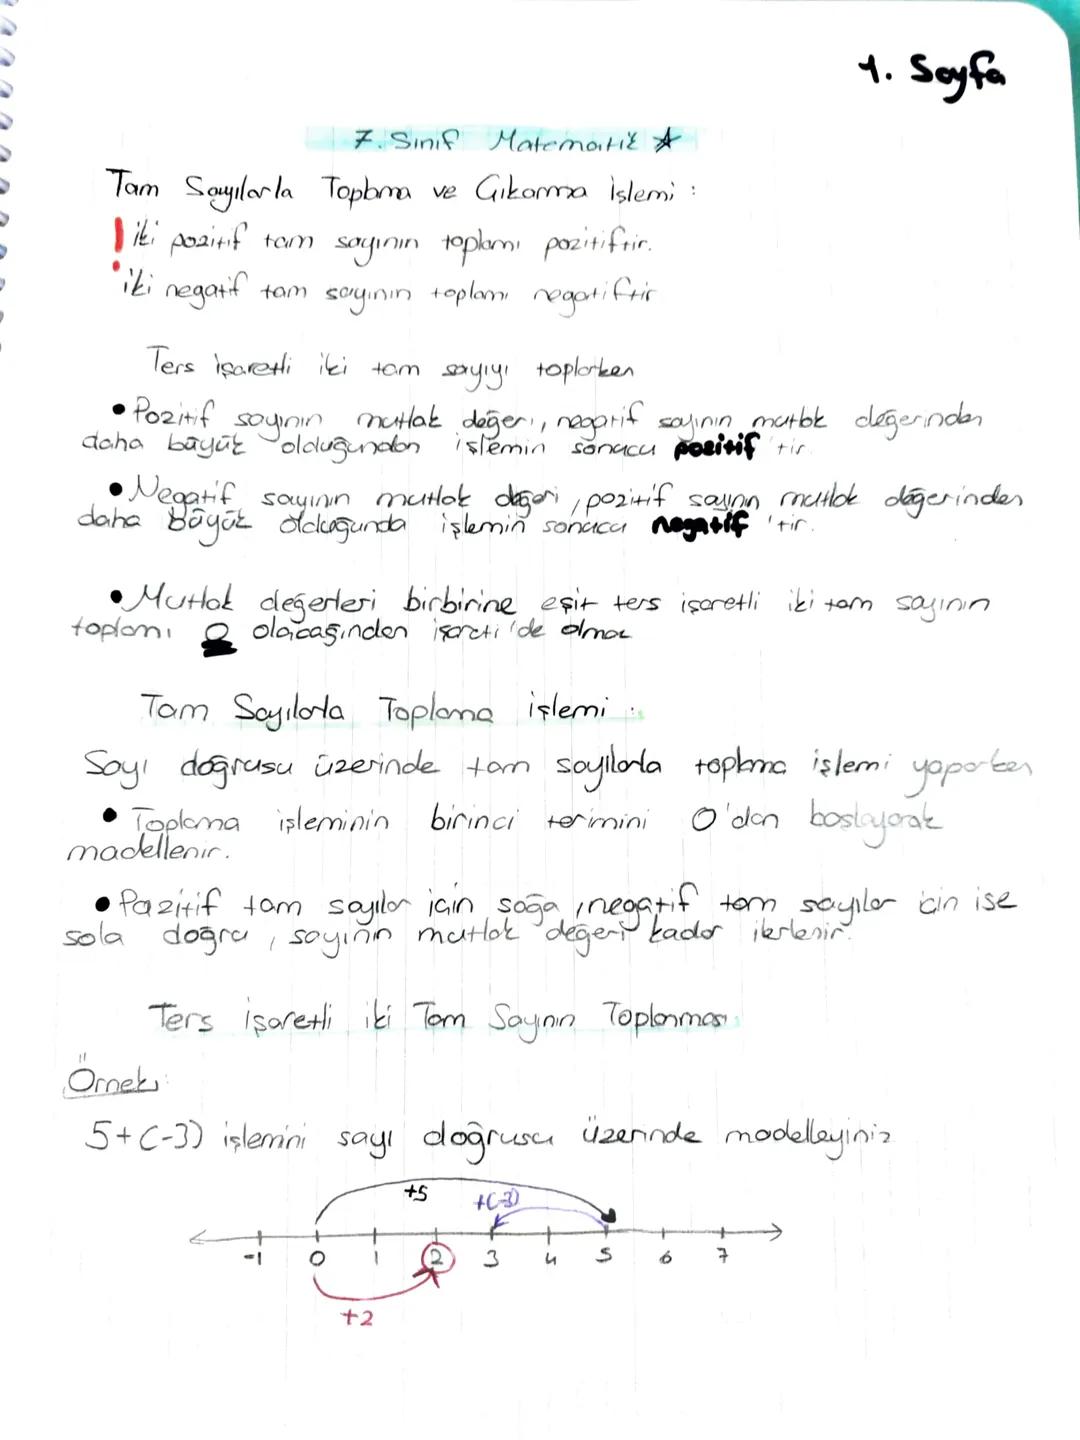 1. Sayfa
7. Sınıf Matematik
Tam Sayılarla Toplama ve Çıkarma İşlemi :
! iki pozitif tam sayının toplamı pozitiftir.
iki negatif tam sayının toplamı negatiftir
Ters işaretli iki tam sayıyı toplarken
• Pozitif sayının mutlak değeri, negatif sayının mutlak değerinden
daha büyük olduğundan işlemin sonucu pozitif 'tir.
• Negatif sayının mutlak değeri, pozitif sayının mutlak değerinden
daha büyük olduğunda işlemin sonucu negatif 'tir.
• Mutlak değerleri birbirine eşit ters işaretli iki tam sayının
toplamı 0 olacağından işareti 'de olmaz
Tam Sayılarla Toplama işlemi :
Sayı doğrusu üzerinde tam sayılarla toplama işlemi yaparken
• Toplama işleminin birinci terimini 0'dan başlayarak
modellenir.
• Pozitif tam sayılar için sağa, negatif tam sayılar için ise
sola doğru, sayının mutlak değeri kadar ilerlenir.
Ters işaretli iki Tam Sayının Toplanması
Örnek:
5+(-3) işlemini sayı doğrusu üzerinde modelleyiniz
+5 +(-3)
-1 0 1 2 3 4 5 6 7
+2